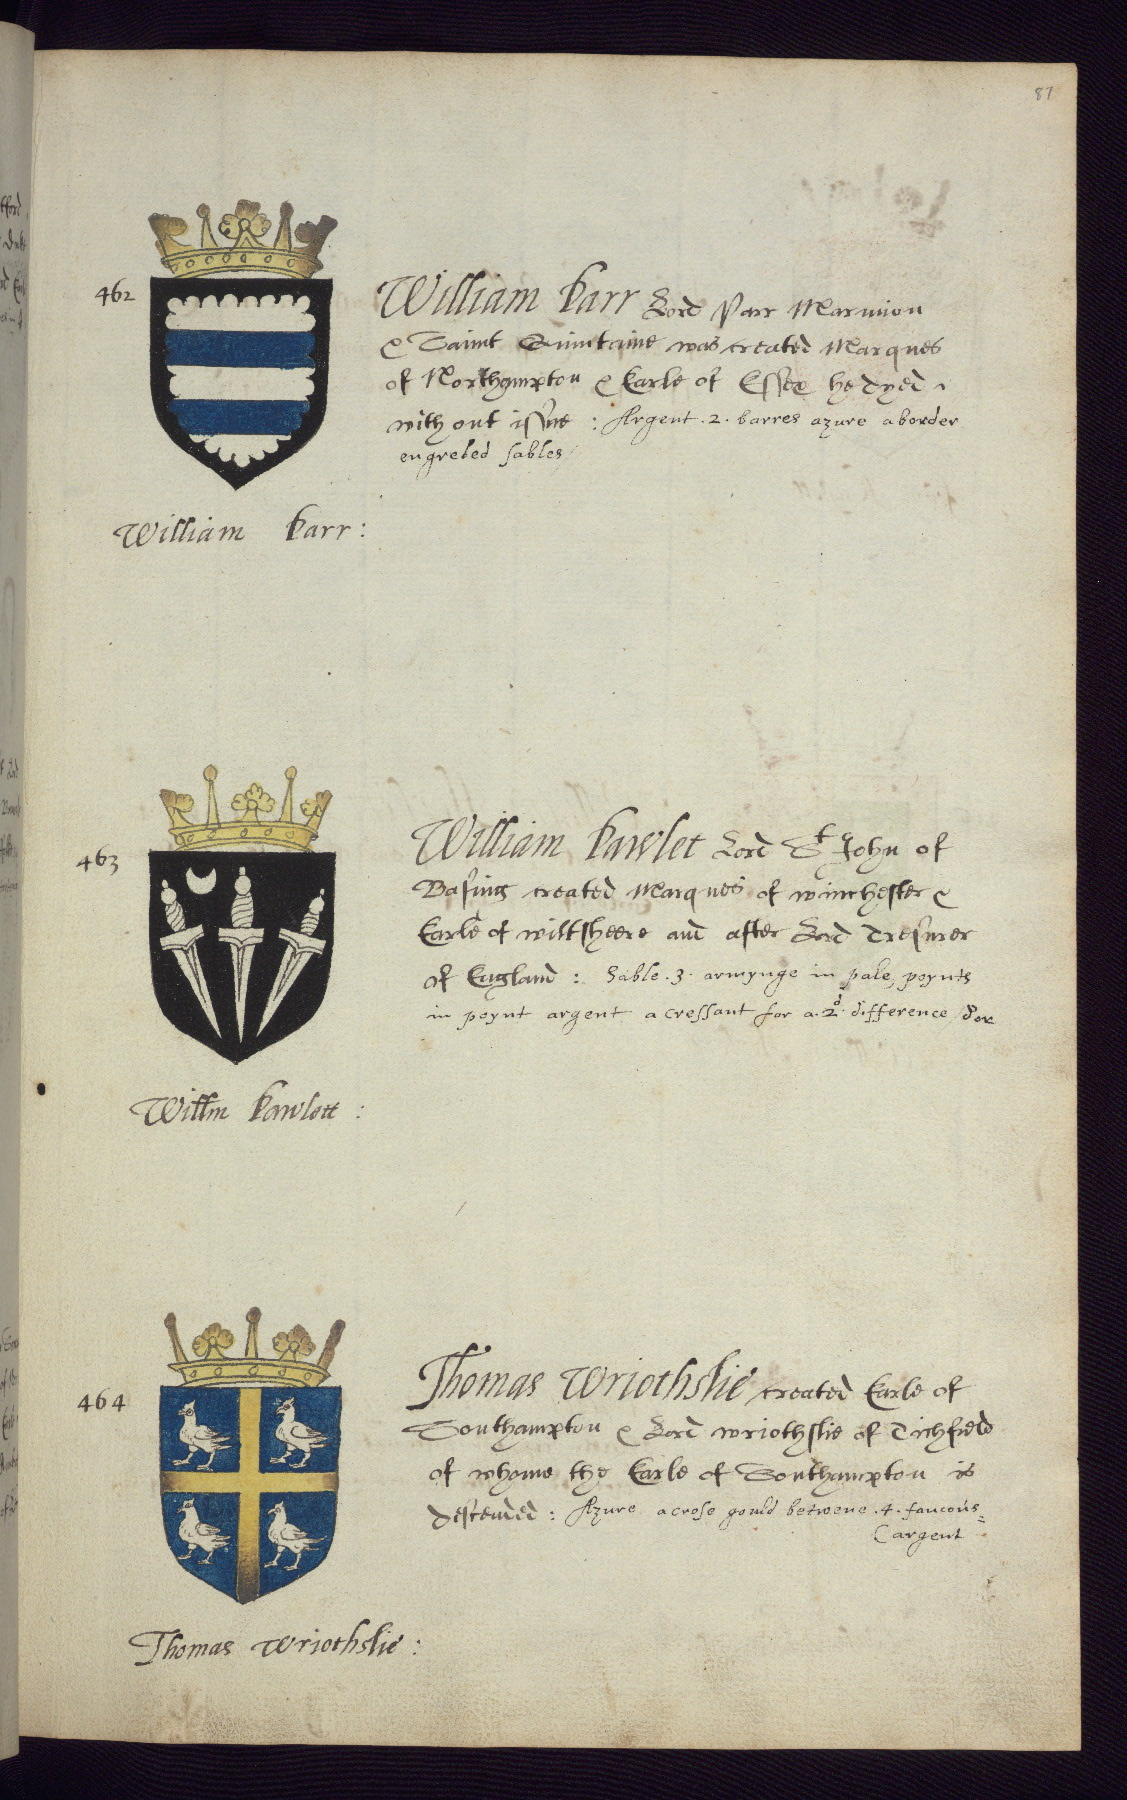 87
462
William Parr Lord Parr Marmion
& Saint Quintaine was created Marques
of Northampton & Earle of Essex he dyed
with out issue : Argent . 2 . barres azure a border
engreled sables
William Parr :
463
William Pawlet Lord St John of
Basing created Marques of winchester &
Earle of wiltsheere and after Lord Tresurer
of England : Sable . 3 . armynge in pale, poynts
in poynt argent a cressant for a . 2d . difference d'or
Willm Pawlett :
464
Thomas Wriothslie created Earle of
Southampton & Lord wriothslie of Tichfield
of whome the Earle of Southampton is
descended : Azure a crose gould betwene . 4 . faucons
(argent
Thomas Wriothslie :